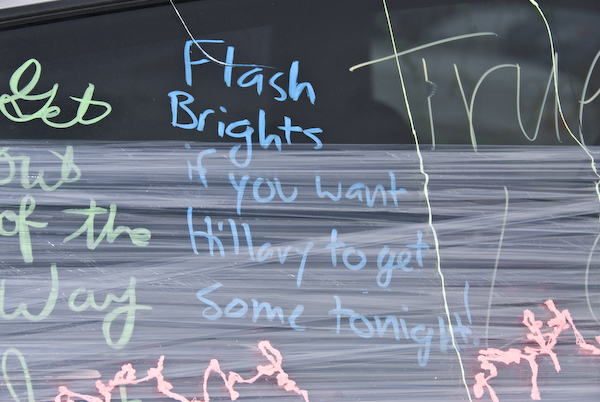 Get
out
of the
Way
Flash
Brights
if you want
Hillary to get
some tonight!
True